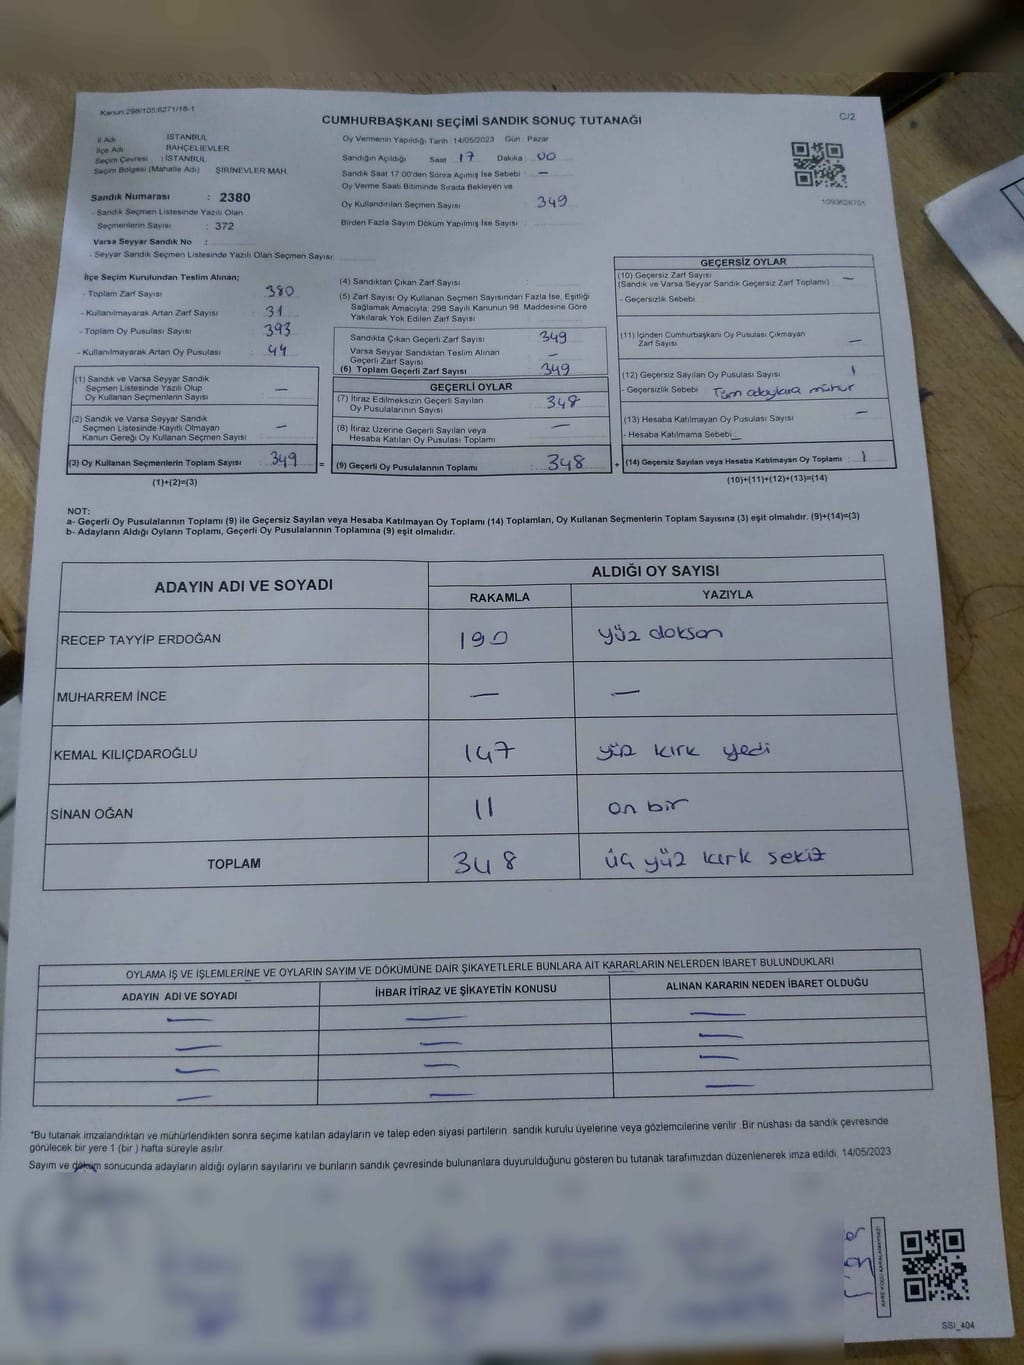 Kanun:298/105;6271/18-1
CUMHURBAŞKANI SEÇİMİ SANDIK SONUÇ TUTANAĞI
C/2
İl Adı İSTANBUL
İlçe Adı BAHÇELİEVLER
Seçim Çevresi : İSTANBUL
Seçim Bölgesi (Mahalle Adı) ŞİRİNEVLER MAH.
Oy Vermenin Yapıldığı Tarih : 14/05/2023 Gün : Pazar
Sandığın Açıldığı Saat 17 Dakika 00
Sandık Saat 17:00'den Sonra Açımış İse Sebebi : —
Oy Verme Saati Bitiminde Sırada Bekleyen ve
Oy Kullandırılan Seçmen Sayısı : 349
Birden Fazla Sayım Döküm Yapılmış İse Sayısı :
1093628701
Sandık Numarası : 2380
- Sandık Seçmen Listesinde Yazılı Olan
Seçmenlerin Sayısı : 372
Varsa Seyyar Sandık No :
- Seyyar Sandık Seçmen Listesinde Yazılı Olan Seçmen Sayısı:
İlçe Seçim Kurulundan Teslim Alınan;
- Toplam Zarf Sayısı : 380
- Kullanılmayarak Artan Zarf Sayısı : 31
- Toplam Oy Pusulası Sayısı : 393
- Kullanılmayarak Artan Oy Pusulası : 44
(1) Sandık ve Varsa Seyyar Sandık
Seçmen Listesinde Yazılı Olup
Oy Kullanan Seçmenlerin Sayısı : —
(2) Sandık ve Varsa Seyyar Sandık
Seçmen Listesinde Kayıtlı Olmayan
Kanun Gereği Oy Kullanan Seçmen Sayısı : —
(3) Oy Kullanan Seçmenlerin Toplam Sayısı : 349 =
(1)+(2)=(3)
(4) Sandıktan Çıkan Zarf Sayısı :
(5) Zarf Sayısı Oy Kullanan Seçmen Sayısından Fazla İse, Eşitliği
Sağlamak Amacıyla, 298 Sayılı Kanunun 98. Maddesine Göre
Yakılarak Yok Edilen Zarf Sayısı :
Sandıkta Çıkan Geçerli Zarf Sayısı : 349
Varsa Seyyar Sandıktan Teslim Alınan
Geçerli Zarf Sayısı : —
(6) Toplam Geçerli Zarf Sayısı : 349
GEÇERLİ OYLAR
(7) İtiraz Edilmeksizin Geçerli Sayılan
Oy Pusulalarının Sayısı : 348
(8) İtiraz Üzerine Geçerli Sayılan veya
Hesaba Katılan Oy Pusulası Toplamı : —
(9) Geçerli Oy Pusulalarının Toplamı : 348 +
GEÇERSİZ OYLAR
(10) Geçersiz Zarf Sayısı : —
(Sandık ve Varsa Seyyar Sandık Geçersiz Zarf Toplamı)
- Geçersizlik Sebebi :
(11) İçinden Cumhurbaşkanı Oy Pusulası Çıkmayan
Zarf Sayısı : —
(12) Geçersiz Sayılan Oy Pusulası Sayısı : 1
- Geçersizlik Sebebi : Tüm adaylara mühür
(13) Hesaba Katılmayan Oy Pusulası Sayısı : —
- Hesaba Katılmama Sebebi : —
(14) Geçersiz Sayılan veya Hesaba Katılmayan Oy Toplamı : 1
(10)+(11)+(12)+(13)=(14)
NOT:
a- Geçerli Oy Pusulalarının Toplamı (9) ile Geçersiz Sayılan veya Hesaba Katılmayan Oy Toplamı (14) Toplamları, Oy Kullanan Seçmenlerin Toplam Sayısına (3) eşit olmalıdır. (9)+(14)=(3)
b- Adayların Aldığı Oyların Toplamı, Geçerli Oy Pusulalarının Toplamına (9) eşit olmalıdır.
ADAYIN ADI VE SOYADI ALDIĞI OY SAYISI
RAKAMLA YAZIYLA
RECEP TAYYİP ERDOĞAN 190 yüz doksan
MUHARREM İNCE — —
KEMAL KILIÇDAROĞLU 147 yüz kırk yedi
SİNAN OĞAN 11 on bir
TOPLAM 348 üç yüz kırk sekiz
OYLAMA İŞ VE İŞLEMLERİNE VE OYLARIN SAYIM VE DÖKÜMÜNE DAİR ŞİKAYETLERLE BUNLARA AİT KARARLARIN NELERDEN İBARET BULUNDUKLARI
ADAYIN ADI VE SOYADI İHBAR İTİRAZ VE ŞİKAYETİN KONUSU ALINAN KARARIN NEDEN İBARET OLDUĞU
— — —
— — —
— — —
— — —
*Bu tutanak imzalandıktan ve mühürlendikten sonra seçime katılan adayların ve talep eden siyasi partilerin sandık kurulu üyelerine veya gözlemcilerine verilir .Bir nüshası da sandık çevresinde
görülecek bir yere 1 (bir ) hafta süreyle asılır.
Sayım ve döküm sonucunda adayların aldığı oyların sayılarını ve bunların sandık çevresinde bulunanlara duyurulduğunu gösteren bu tutanak tarafımızdan düzenlenerek imza edildi. 14/05/2023
KARE KODU KARALAMAYINIZ!
SSI_404